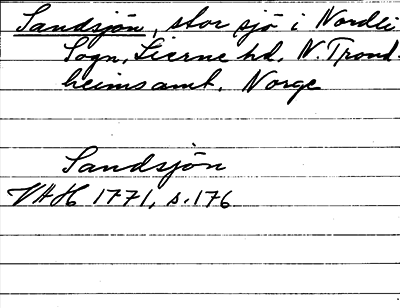 Sandsjön, stor sjö i Nordli
Sogn, Lierne hd. N. Trond-
heims amt. Norge
Sandsjön
VAH 1771, s. 176